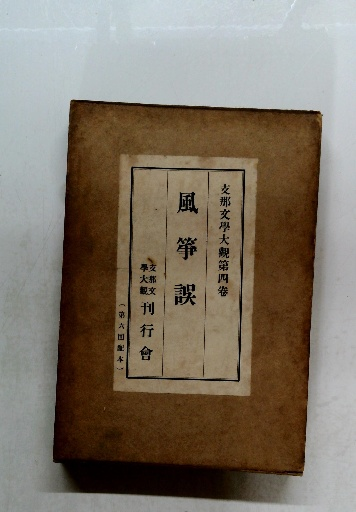 支那文學大觀第四卷
風箏誤
支那文
學大觀
刊行會
(第六回配本)